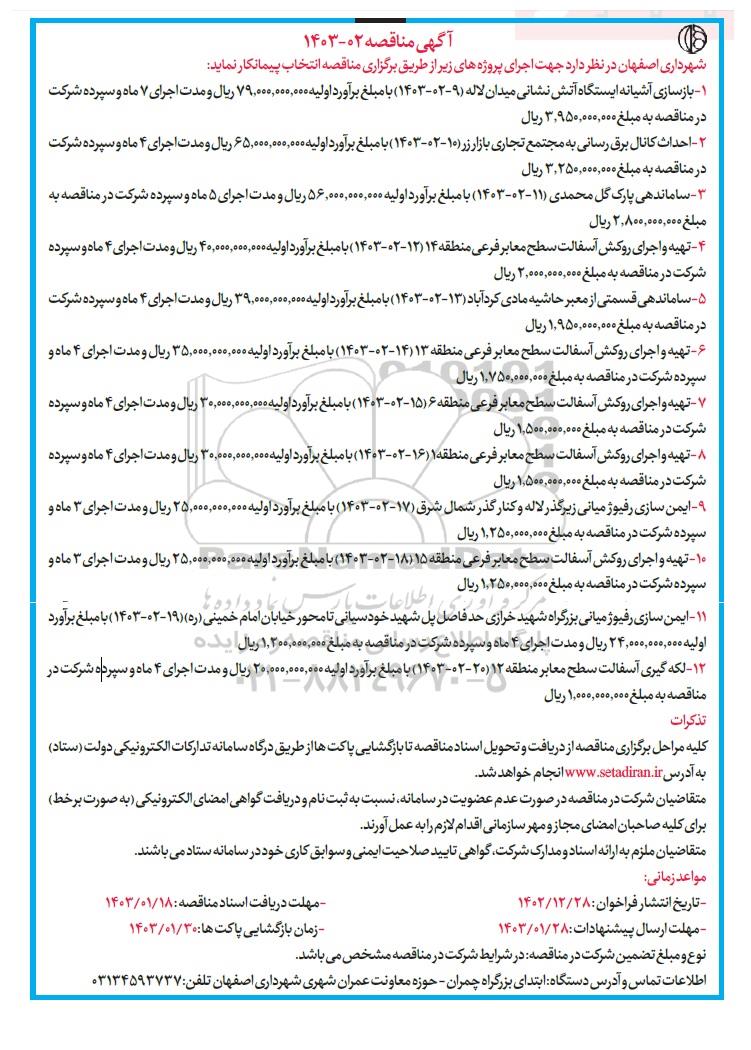 آگهی مناقصه ۰۲-۱۴۰۳
شهرداری اصفهان در نظر دارد جهت اجرای پروژه های زیر از طریق برگزاری مناقصه انتخاب پیمانکار نماید:
۱-بازسازی آشیانه ایستگاه آتش نشانی میدان لاله (۹-۰۲-۱۴۰۳) با مبلغ برآورد اولیه ۷۹,۰۰۰,۰۰۰,۰۰۰ ریال و مدت اجرای ۷ ماه و سپرده شرکت
در مناقصه به مبلغ ۳,۹۵۰,۰۰۰,۰۰۰ ریال
۲-احداث کانال برق رسانی به مجتمع تجاری بازار زر (۱۰-۰۲-۱۴۰۳) با مبلغ برآورد اولیه ۶۵,۰۰۰,۰۰۰,۰۰۰ ریال و مدت اجرای ۴ ماه و سپرده شرکت
در مناقصه به مبلغ ۳,۲۵۰,۰۰۰,۰۰۰ ریال
۳-ساماندهی پارک گل محمدی (۱۱-۰۲-۱۴۰۳) با مبلغ برآورد اولیه ۵۶,۰۰۰,۰۰۰,۰۰۰ ریال و مدت اجرای ۵ ماه و سپرده شرکت در مناقصه به
مبلغ ۲,۸۰۰,۰۰۰,۰۰۰ ریال
۴-تهیه و اجرای روکش آسفالت سطح معابر فرعی منطقه ۱۴ (۱۲-۰۲-۱۴۰۳) با مبلغ برآورد اولیه ۴۰,۰۰۰,۰۰۰,۰۰۰ ریال و مدت اجرای ۴ ماه و سپرده
شرکت در مناقصه به مبلغ ۲,۰۰۰,۰۰۰,۰۰۰ ریال
۵-ساماندهی قسمتی از معبر حاشیه مادی کردآباد (۱۳-۰۲-۱۴۰۳) با مبلغ برآورد اولیه ۳۹,۰۰۰,۰۰۰,۰۰۰ ریال و مدت اجرای ۴ ماه و سپرده شرکت
در مناقصه به مبلغ ۱,۹۵۰,۰۰۰,۰۰۰ ریال
۶-تهیه و اجرای روکش آسفالت سطح معابر فرعی منطقه ۱۳ (۱۴-۰۲-۱۴۰۳) با مبلغ برآورد اولیه ۳۵,۰۰۰,۰۰۰,۰۰۰ ریال و مدت اجرای ۴ ماه و
سپرده شرکت در مناقصه به مبلغ ۱,۷۵۰,۰۰۰,۰۰۰ ریال
۷-تهیه و اجرای روکش آسفالت سطح معابر فرعی منطقه ۶ (۱۵-۰۲-۱۴۰۳) با مبلغ برآورد اولیه ۳۰,۰۰۰,۰۰۰,۰۰۰ ریال و مدت اجرای ۴ ماه و سپرده
شرکت در مناقصه به مبلغ ۱,۵۰۰,۰۰۰,۰۰۰ ریال
۸-تهیه و اجرای روکش آسفالت سطح معابر فرعی منطقه ۱ (۱۶-۰۲-۱۴۰۳) با مبلغ برآورد اولیه ۳۰,۰۰۰,۰۰۰,۰۰۰ ریال و مدت اجرای ۴ ماه و سپرده
شرکت در مناقصه به مبلغ ۱,۵۰۰,۰۰۰,۰۰۰ ریال
۹-ایمن سازی رفیوژ میانی زیرگذر لاله و کنار گذر شمال شرق (۱۷-۰۲-۱۴۰۳) با مبلغ برآورد اولیه ۲۵,۰۰۰,۰۰۰,۰۰۰ ریال و مدت اجرای ۳ ماه و
سپرده شرکت در مناقصه به مبلغ ۱,۲۵۰,۰۰۰,۰۰۰ ریال
۱۰-تهیه و اجرای روکش آسفالت سطح معابر فرعی منطقه ۱۵ (۱۸-۰۲-۱۴۰۳) با مبلغ برآورد اولیه ۲۵,۰۰۰,۰۰۰,۰۰۰ ریال و مدت اجرای ۳ ماه و
سپرده شرکت در مناقصه به مبلغ ۱,۲۵۰,۰۰۰,۰۰۰ ریال
ParsNamadData
مرکز و آوری اطلاعات پارس نماد داده ها
۱۱-ایمن سازی رفیوژ میانی بزرگراه شهید خرازی حد فاصل پل شهید خودسیانی تا محور خیابان امام خمینی (ره) (۱۹-۰۲-۱۴۰۳) با مبلغ برآورد
اولیه ۲۴,۰۰۰,۰۰۰,۰۰۰ ریال و مدت اجرای ۴ ماه و سپرده شرکت در مناقصه به مبلغ ۱,۲۰۰,۰۰۰,۰۰۰ ریال
پایگاه اطلاع رسانی مناقصه و مزایده
۱۲-لکه گیری آسفالت سطح معابر منطقه ۱۲ (۲۰-۰۲-۱۴۰۳) با مبلغ برآورد اولیه ۲۰,۰۰۰,۰۰۰,۰۰۰ ریال و مدت اجرای ۴ ماه و سپرده شرکت در
۰۲۱-۸۸۳۴۹۶۷۰-۵
مناقصه به مبلغ ۱,۰۰۰,۰۰۰,۰۰۰ ریال
تذکرات
کلیه مراحل برگزاری مناقصه از دریافت و تحویل اسناد مناقصه تا بازگشایی پاکت ها از طریق درگاه سامانه تدارکات الکترونیکی دولت (ستاد)
به آدرس www.setadiran.ir انجام خواهد شد.
متقاضیان شرکت در مناقصه در صورت عدم عضویت در سامانه، نسبت به ثبت نام و دریافت گواهی امضای الکترونیکی (به صورت برخط)
برای کلیه صاحبان امضای مجاز و مهر سازمانی اقدام لازم را به عمل آورند.
متقاضیان ملزم به ارائه اسناد و مدارک شرکت، گواهی تایید صلاحیت ایمنی و سوابق کاری خود در سامانه ستاد می باشند.
مواعد زمانی:
-تاریخ انتشار فراخوان: ۱۴۰۲/۱۲/۲۸ -مهلت دریافت اسناد مناقصه: ۱۴۰۳/۰۱/۱۸
-مهلت ارسال پیشنهادات: ۱۴۰۳/۰۱/۲۸ -زمان بازگشایی پاکت ها: ۱۴۰۳/۰۱/۳۰
نوع و مبلغ تضمین شرکت در مناقصه: در شرایط شرکت در مناقصه مشخص می باشد.
اطلاعات تماس و آدرس دستگاه: ابتدای بزرگراه چمران - حوزه معاونت عمران شهری شهرداری اصفهان تلفن: ۰۳۱۳۴۵۹۳۷۳۷